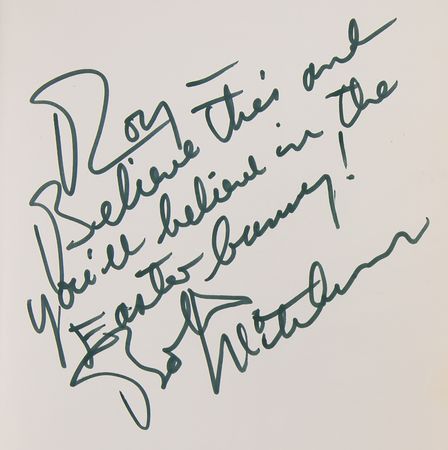 Roy —
Believe this and
you'll believe in the
Easter bunny!
Bob Mitchum